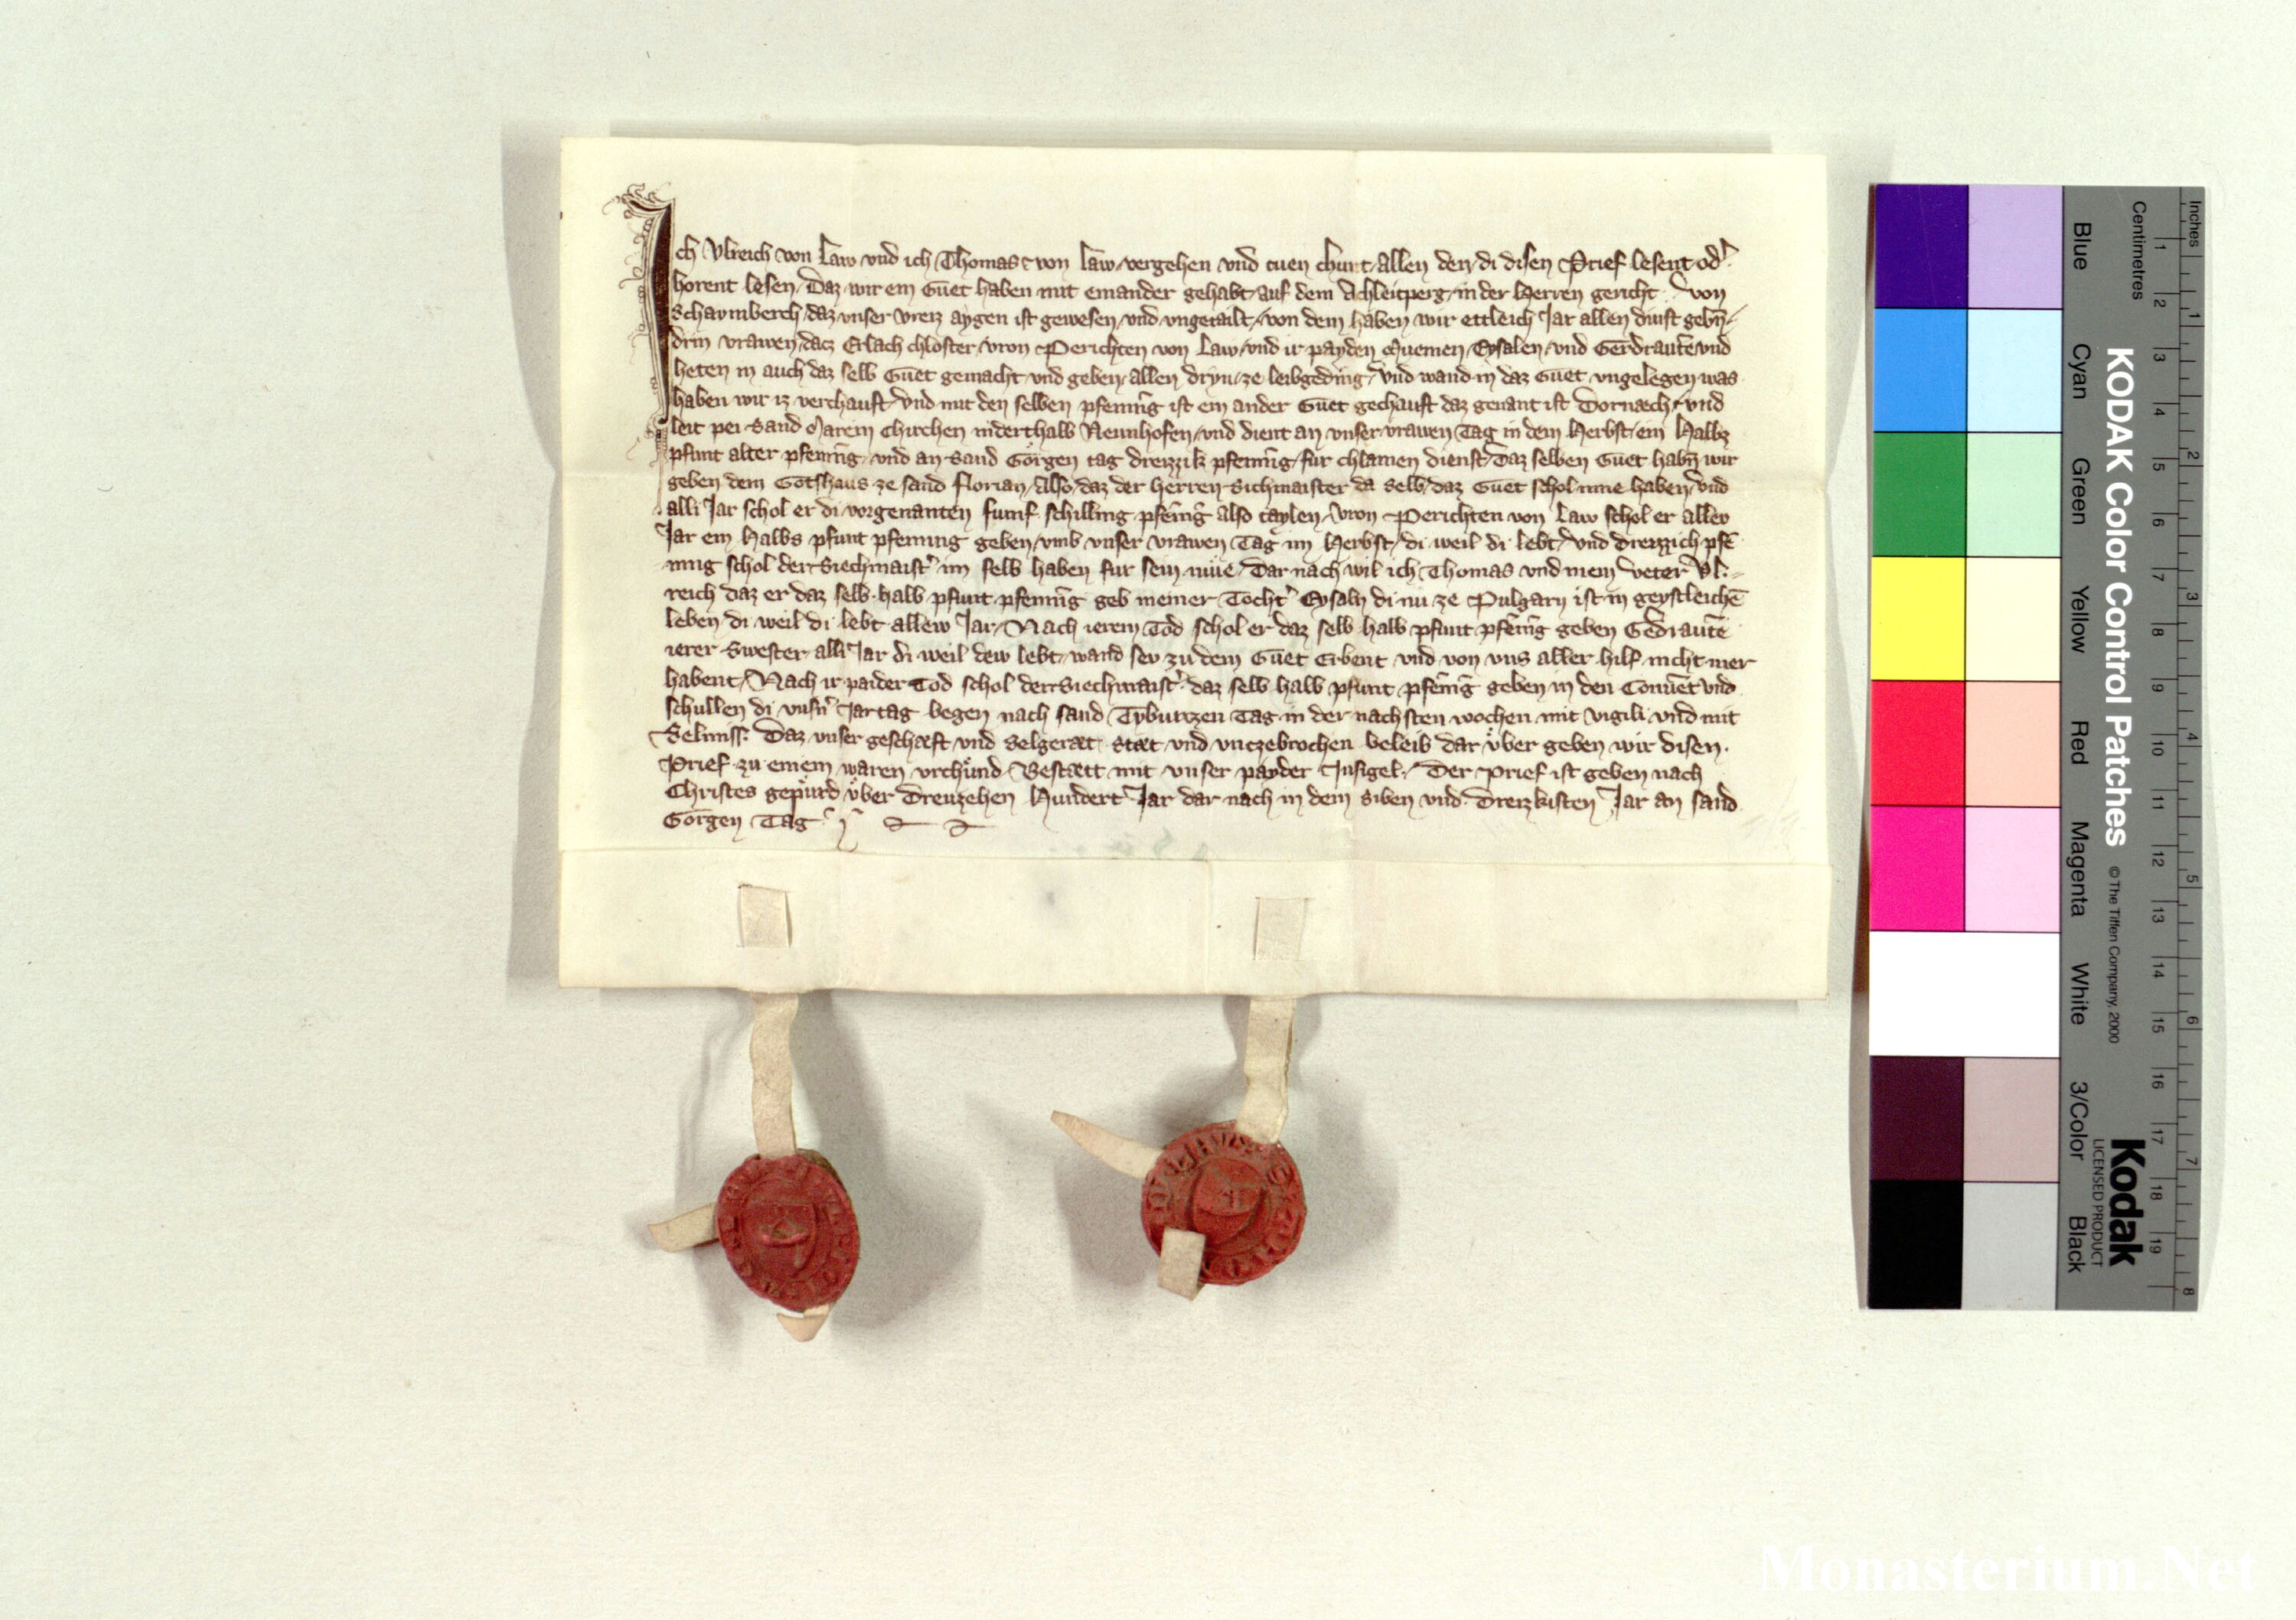 Ich Vlreich von Law vnd ich Thomas von Law vergehen vnd tuen chunt allen den di disen Prief lesent od͛
horent lesen Daz wir ein Guet haben mit einander gehabt auf dem Achleitperg in der Herren gericht von
Schavmberch daz vnser vreiz aygen ist gewesen vnd vngetailt von dem haben wir ettleich Jar allen dinst gebn̄
drin vrawen dacz Erlach chloster vron Perichten von Law vnd ir payden Muemen Eysalen vnd Gerdrauten vnd
heten in auch daz selb Guet gemacht vnd geben allen dryn ze leibgeding vnd wand in daz Guet vngelegen was
haben wir iz verchauft vnd mit den selben pfenning ist ein ander Guet gechauft daz genant ist Dornaech vnd
leit pei Sand Marein Chirchen niderthalb Neunhofen vnd dient an vnser vrawen Tag in dem Herbst ein Halbz
pfunt alter pfenning vnd an Sand Görgen tag dreizzik pfenning fur chlainen dienst Daz selben Guet habn̄ wir
geben dem Gotshaus ze sand florian Also daz der herren Sichmaister da selb daz Guet schol inne haben vnd
alli Jar schol er di vorgenanten fumf schilling pfēnīg also taylen vron Perichten von Law schol er allev
Jar ein Halbs pfunt pfenning geben vmb vnser vrawen Tag im Herbst di weil di lebt vnd dreizzich pfē
ning schol der Siechmaist͛ im selb haben fur sein müe Dar nach wil ich Thomas vnd mein veter Vl=
reich daz er daz selb halb pfunt pfenning geb meiner Tocht͛ Eysaln di nu ze Pulgarn ist in geystleichē
leben di weil di lebt allew Jar Nach ierem Tod schol er daz selb halb pfunt pfēnīg geben Gedrauten
ierer Swester alli Jar di weil dew lebt wand sev zu dem Guet Erbent vnd von vns aller hilf nicht mer
habent Nach ir paider Tod schol der Siechmaist͛ daz selb halb pfunt pfēnīg geben in den Conuēt vnd
schullen di vnsn͛ Jartag begen nach sand Tyburtzen Tag in der nachsten wochen mit vigili vnd mit
Selmiss Daz vnser geschæft vnd Selgeræt stæt vnd vntzebrochen beleib dar über geben wir disen
Prief zu einem waren vrchünd Bestætt mit vnser payder Insigel Der Prief ist geben nach
Christes gepürd über Dreuzehen Hundert Jar dar nach in dem Siben vnd Dreizkisten Jar an sand
Görgen Tag
Inches
Centimetres
KODAK Color Control Patches © The Tiffen Company, 2000 Kodak
LICENSED PRODUCT
Blue Cyan Green Yellow Red Magenta White 3/Color Black
1 2 3 4 5 6 7 8 9 10 11 12 13 14 15 16 17 18 19
1 2 3 4 5 6 7 8
Monasterium.Net